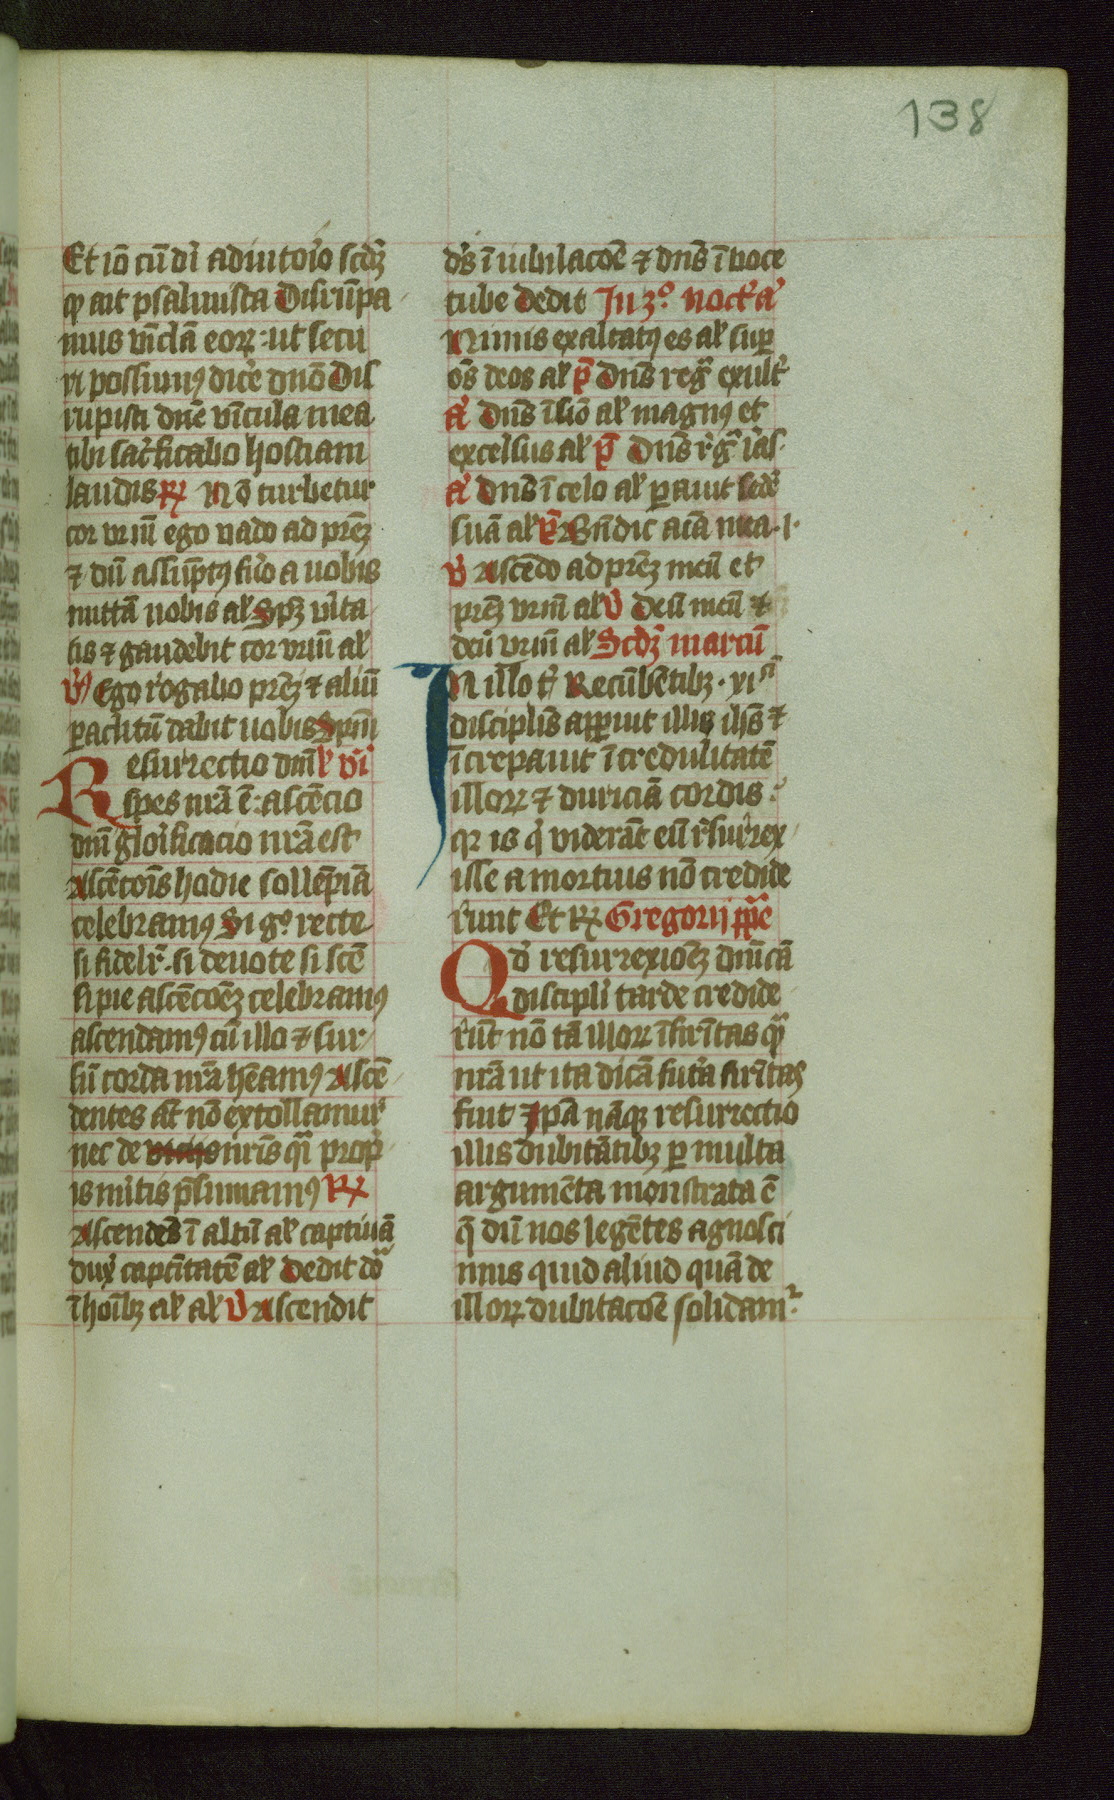 138
Et iō cū dī adiutoīo scdꝫ
qͥ ait psalmista Disrūpa
mus vīclā eoꝝ ut secu
ri possimꝰ dice dnō Dis
rupisti dnē vīcula mea
tibi sac͛ficabo hostiam
laudis ℞ Nō turbetur
cor vrm̄ ego vado ad prēꝫ
⁊ dū assūptꝰ fūo a uobis
mittā uobis al̄ Spꝫ vīta
tis ⁊ gaudebit cor vrm̄ al̄
v̄ Ego rogabo prēꝫ ⁊ aliū
paclitū dabit uobis Spm̄
Resurrectio dnī l̄ vi
spes nrā ē ascēcio
dnī glōificacio nrā est
Ascēcōis hodie sollēpniā
celebramꝰ Si gͦ recte
si fidelr̄ si deuote si scē
si pie ascēcōeꝫ celebramꝰ
ascendamꝰ cū illo ⁊ sur
sū corda nrā hēamꝰ Ascē
dentes at̄ nō extollamur
nec de nrīs qͣi prop
iis mitis p̄sumamꝰ ℞
Ascendēs ī altū al̄ captiuā
dux͛ captītatē al̄ Dedit dōͣ
ī hoībꝫ al̄ al̄ v̄ Ascendit
dꝰs ī iubilacōe ⁊ dns̄ ī uoce
tube Dedit In 3º noct͛ā
Nimis exaltatꝰ es al̄ sup
ōs deos al̄ p̄ Dns̄ regͣ exult͛
ā Dns̄ ī sio al̄ magnꝰ et
excelsus al̄ p̄ Dns̄ rgͣ iās
ā Dns̄ ī celo al̄ pauit sedē
suā al̄ p̄ Bn̄dic aīa mea .1.
v̄ Ascēdo ad prēꝫ meū et
prēꝫ vrm̄ al̄ v̄ Deū meū ⁊
deū vrm̄ al̄ Scdꝫ marcū
In illo t͛ Recūbētibꝫ . xi
discipliſ apparuit illis ihs̄ ⁊
īcrepauit īcredulitatē
illoꝝ ⁊ duriciā cordis
qꝛ is q͛ viderāt eū r͛surrex
isse a mortuis nō credide
runt Et ℞ Gregorii ppe
Qd͛ resurrexioēꝫ dnīcā
discipli tarde credide
rūt nō tā illoꝝ īfirītas qͣ
nrā ut ita dicā futa firītas
fuit Ipā nāqꝫ resurrectio
illis dubitātibꝫ p multa
argumēta monstrata ē
q̄ dū nos legētes agnosci
mus quid aliud quā de
illoꝝ dubitacōe solidamͬ